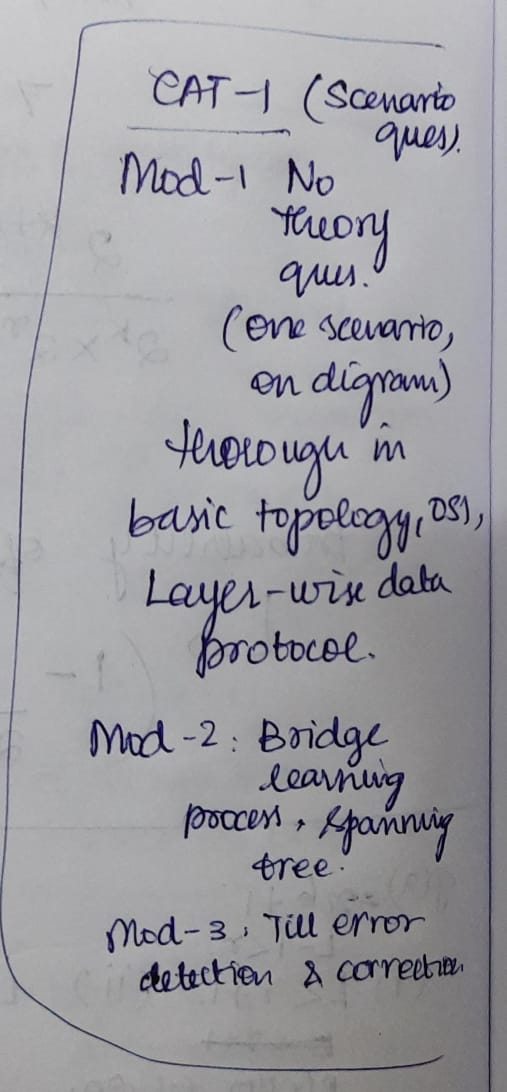 CAT-1 (Scenario
ques).
Mod-1 No
theory
ques.
(one scenario,
on digram)
thorough in
basic topology, OSI,
Layer-wise data
protocol.
Mod-2: Bridge
learning
process, spanning
tree.
Mod-3, Till error
detection & correction